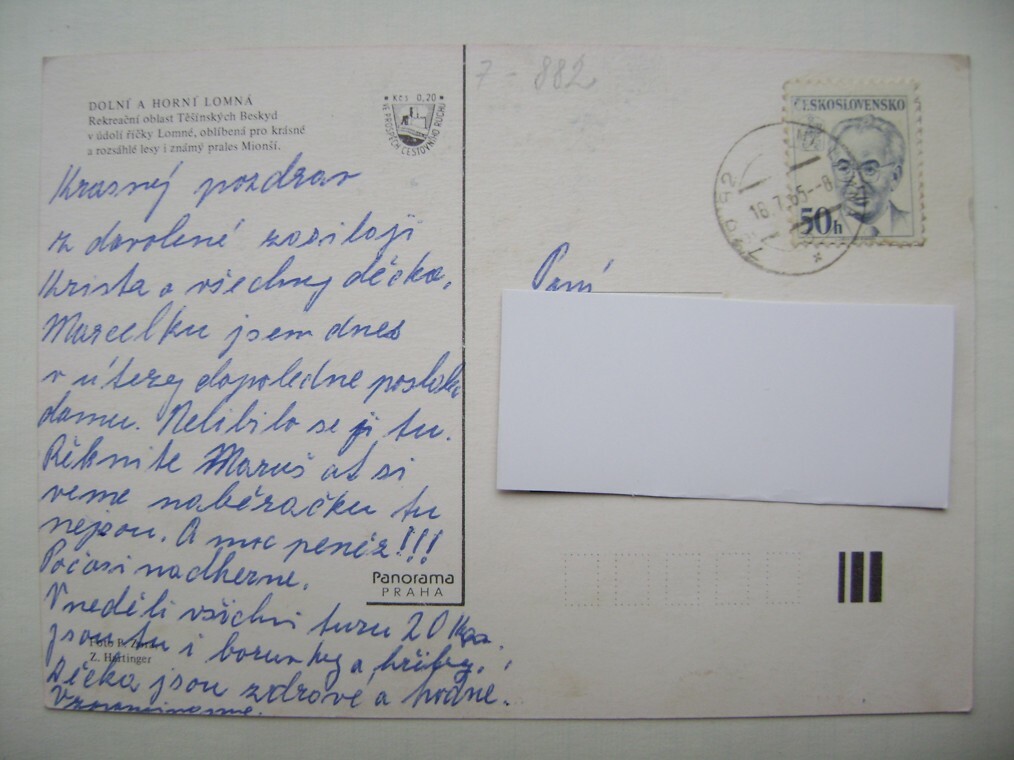 DOLNÍ A HORNÍ LOMNÁ
Rekreační oblast Těšínských Beskyd
v údolí říčky Lomné, oblíbená pro krásné
a rozsáhlé lesy i známý prales Mionší.
• Kčs 0,20 •
VE PROSPĚCH CESTOVNÍHO RUCHU
Krasnej pozdrav
z dovolené zasilaji
Krista a všechny děcka.
Marcelku jsem dnes
v úterey dopoledne poslala
domu. Nelibilo se ji tu.
Řekněte Maruš at si
veme naběračku tu
nejsou. A moc peněz!!!
Počasi nadherne.
V neděli všichni turu 20 Km.
jsou tu i boruvky a hřiby.
Děcka jsou zdrave a hodne.
Vzpominame.
Z. Hartinger
Panorama
PRAHA
7 - 882
ČESKOSLOVENSKO
50h
Paní